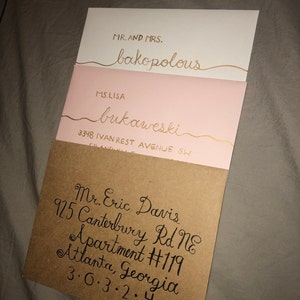 MR. AND MRS.
bakopolous
MS. LISA
bukaweski
3348 IVANREST AVENUE SW
Mr. Eric Davis
925 Canterbury Rd NE
Apartment #119
Atlanta, Georgia
3·0·3·2·4